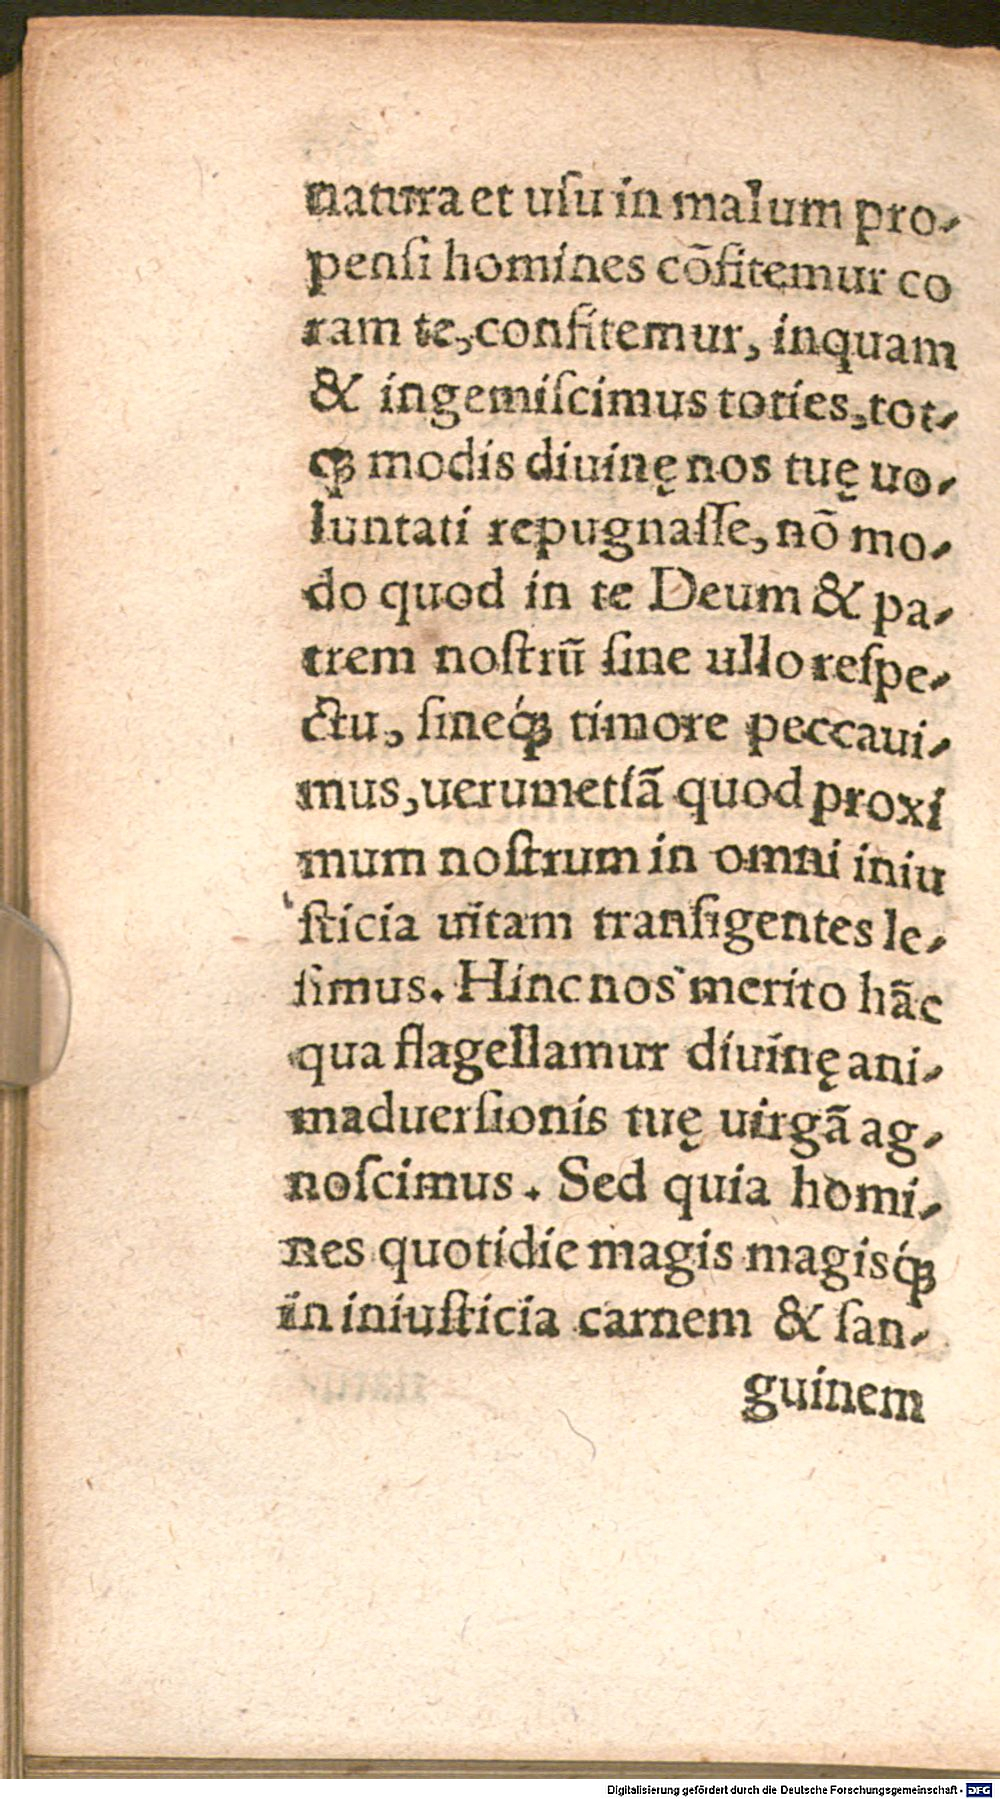 natura et uſu in malum pro-
penſi homines cõfitemur co
ram te, confitemur, inquam
& ingemiſcimus toties, tot-
qȝ modis diuinę nos tuę uo-
luntati repugnaſſe, nõ mo-
do quod in te Deum & pa-
trem noſtrũ ſine ullo reſpe-
ctu, ſineq́ȝ timore peccaui-
mus, uerumetiã quod proxi
mum noſtrum in omni iniu
ſticia uitam tranſigentes le-
ſimus. Hinc nos merito hãc
qua flagellamur diuinę ani-
maduerſionis tuę uirgã ag-
noſcimus. Sed quia homi-
nes quotidie magis magisq́ȝ
in iniuſticia carnem & ſan-
guinem
Digitalisierung gefördert durch die Deutsche Forschungsgemeinschaft - DFG